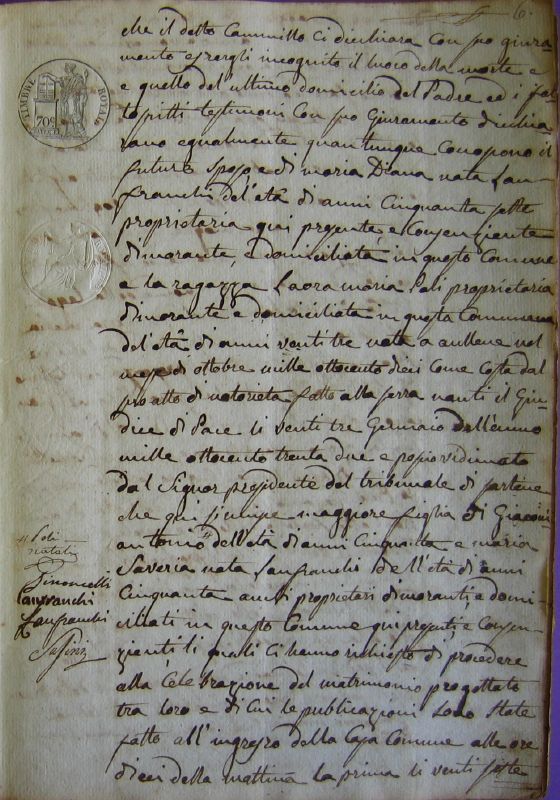 6.
che il detto Cammillo ci dichiara con suo giura
mento essergli incognito il luoco della morte e
e quello del ultimo domicilio del Padre ed i
testimoni con suo giuramento dichia
rano egualmente quantunque conoscono il
futuro sposo e di maria Diana nata Lan
franchi dell'età di anni Cinquanta sette
proprietaria qui presente e consenziente
dimorante, e domiciliata in questo Comune
e la ragazza Laora maria Poli proprietaria
dimorante e domiciliata in questa Comune
del'età di anni venti tre nata a aullene nel
mese di ottobre mille ottocento dieci come costa dal
suo atto di notorieta fatto alla serra nanti il Giu
dice di Pace li venti tre Gennaio dell'anno
mille ottocento trenta due e vidimato
dal Signor presidente del tribunale di sartene
che qui si unisce maggiore figlia di Giacomo
antonio " dell'età di anni Cinquanta e maria
Saveria nata Lanfranchi dell'età di anni
Cinquanta ambi proprietari dimoranti, e domi-
ciliati in questo Comune qui presenti e consen-
zienti li quali ci hanno richiesto di procedere
alla Celebrazione del matrimonio progettato
tra loro e di cui le publicazioni sono state
fatte all'ingresso della Casa Comune alle ore
dieci della mattina la prima li venti sette
TIMBRE ROYAL
70c
" Poli
natale
Simoncelli
Lanfranchi
Lanfranchi